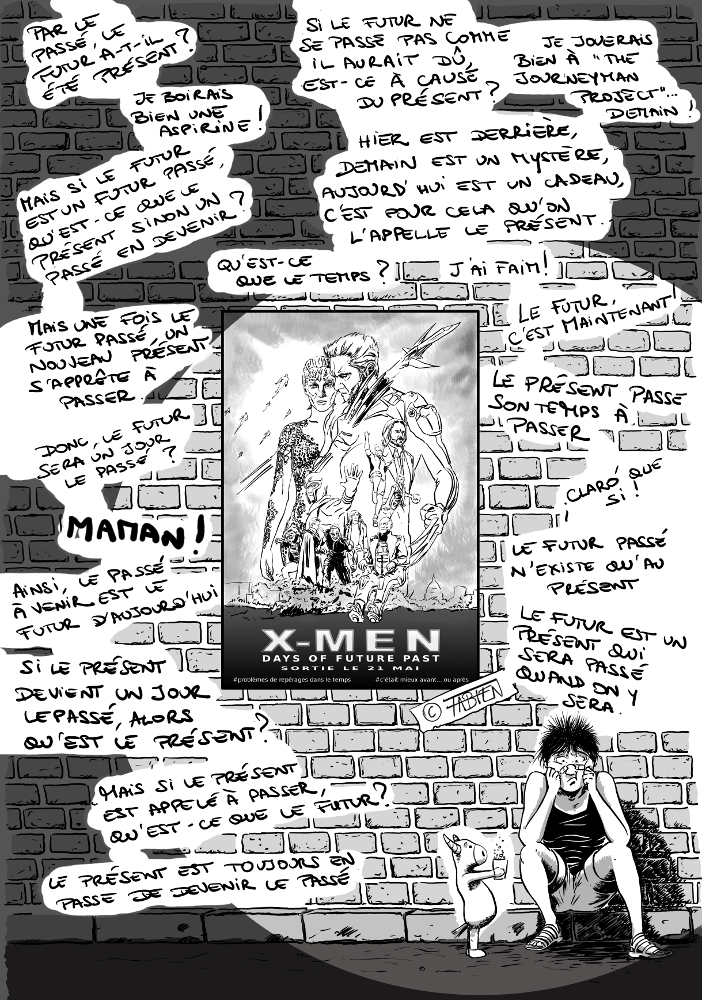 PAR LE
PASSÉ, LE
FUTUR A-T-IL
ÉTÉ PRÉSENT ?
JE BOIRAIS
BIEN UNE
ASPIRINE !
MAIS SI LE FUTUR
EST UN FUTUR PASSÉ,
QU'EST-CE QUE LE
PRÉSENT SINON UN
PASSÉ EN DEVENIR ?
SI LE FUTUR NE
SE PASSE PAS COMME
IL AURAIT DÛ,
EST-CE À CAUSE
DU PRÉSENT ?
JE JOUERAIS
BIEN À "THE
JOURNEYMAN
PROJECT"...
DEMAIN !
HIER EST DERRIÈRE,
DEMAIN EST UN MYSTÈRE,
AUJOURD'HUI EST UN CADEAU,
C'EST POUR CELA QU'ON
L'APPELLE LE PRÉSENT.
QU'EST-CE
QUE LE TEMPS ?
J'AI FAIM !
MAIS UNE FOIS LE
FUTUR PASSÉ, UN
NOUVEAU PRÉSENT
S'APPRÊTE À
PASSER.
DONC, LE FUTUR
SERA UN JOUR
LE PASSÉ ?
MAMAN !
AINSI, LE PASSÉ
À VENIR EST LE
FUTUR D'AUJOURD'HUI
SI LE PRÉSENT
DEVIENT UN JOUR
LE PASSÉ, ALORS
QU'EST LE PRÉSENT ?
MAIS SI LE PRÉSENT
EST APPELÉ À PASSER,
QU'EST-CE QUE LE FUTUR ?
LE PRÉSENT EST TOUJOURS EN
PASSE DE DEVENIR LE PASSÉ
LE FUTUR,
C'EST MAINTENANT !
LE PRÉSENT PASSE
SON TEMPS À
PASSER
CLARO QUE
SI !
LE FUTUR PASSÉ
N'EXISTE QU'AU
PRÉSENT
LE FUTUR EST UN
PRÉSENT QUI
SERA PASSÉ
QUAND ON Y
SERA.
X-MEN
DAYS OF FUTURE PAST
SORTIE LE 21 MAI
#problèmes de repérages dans le temps
#c'était mieux avant... ou après
© FABIEN